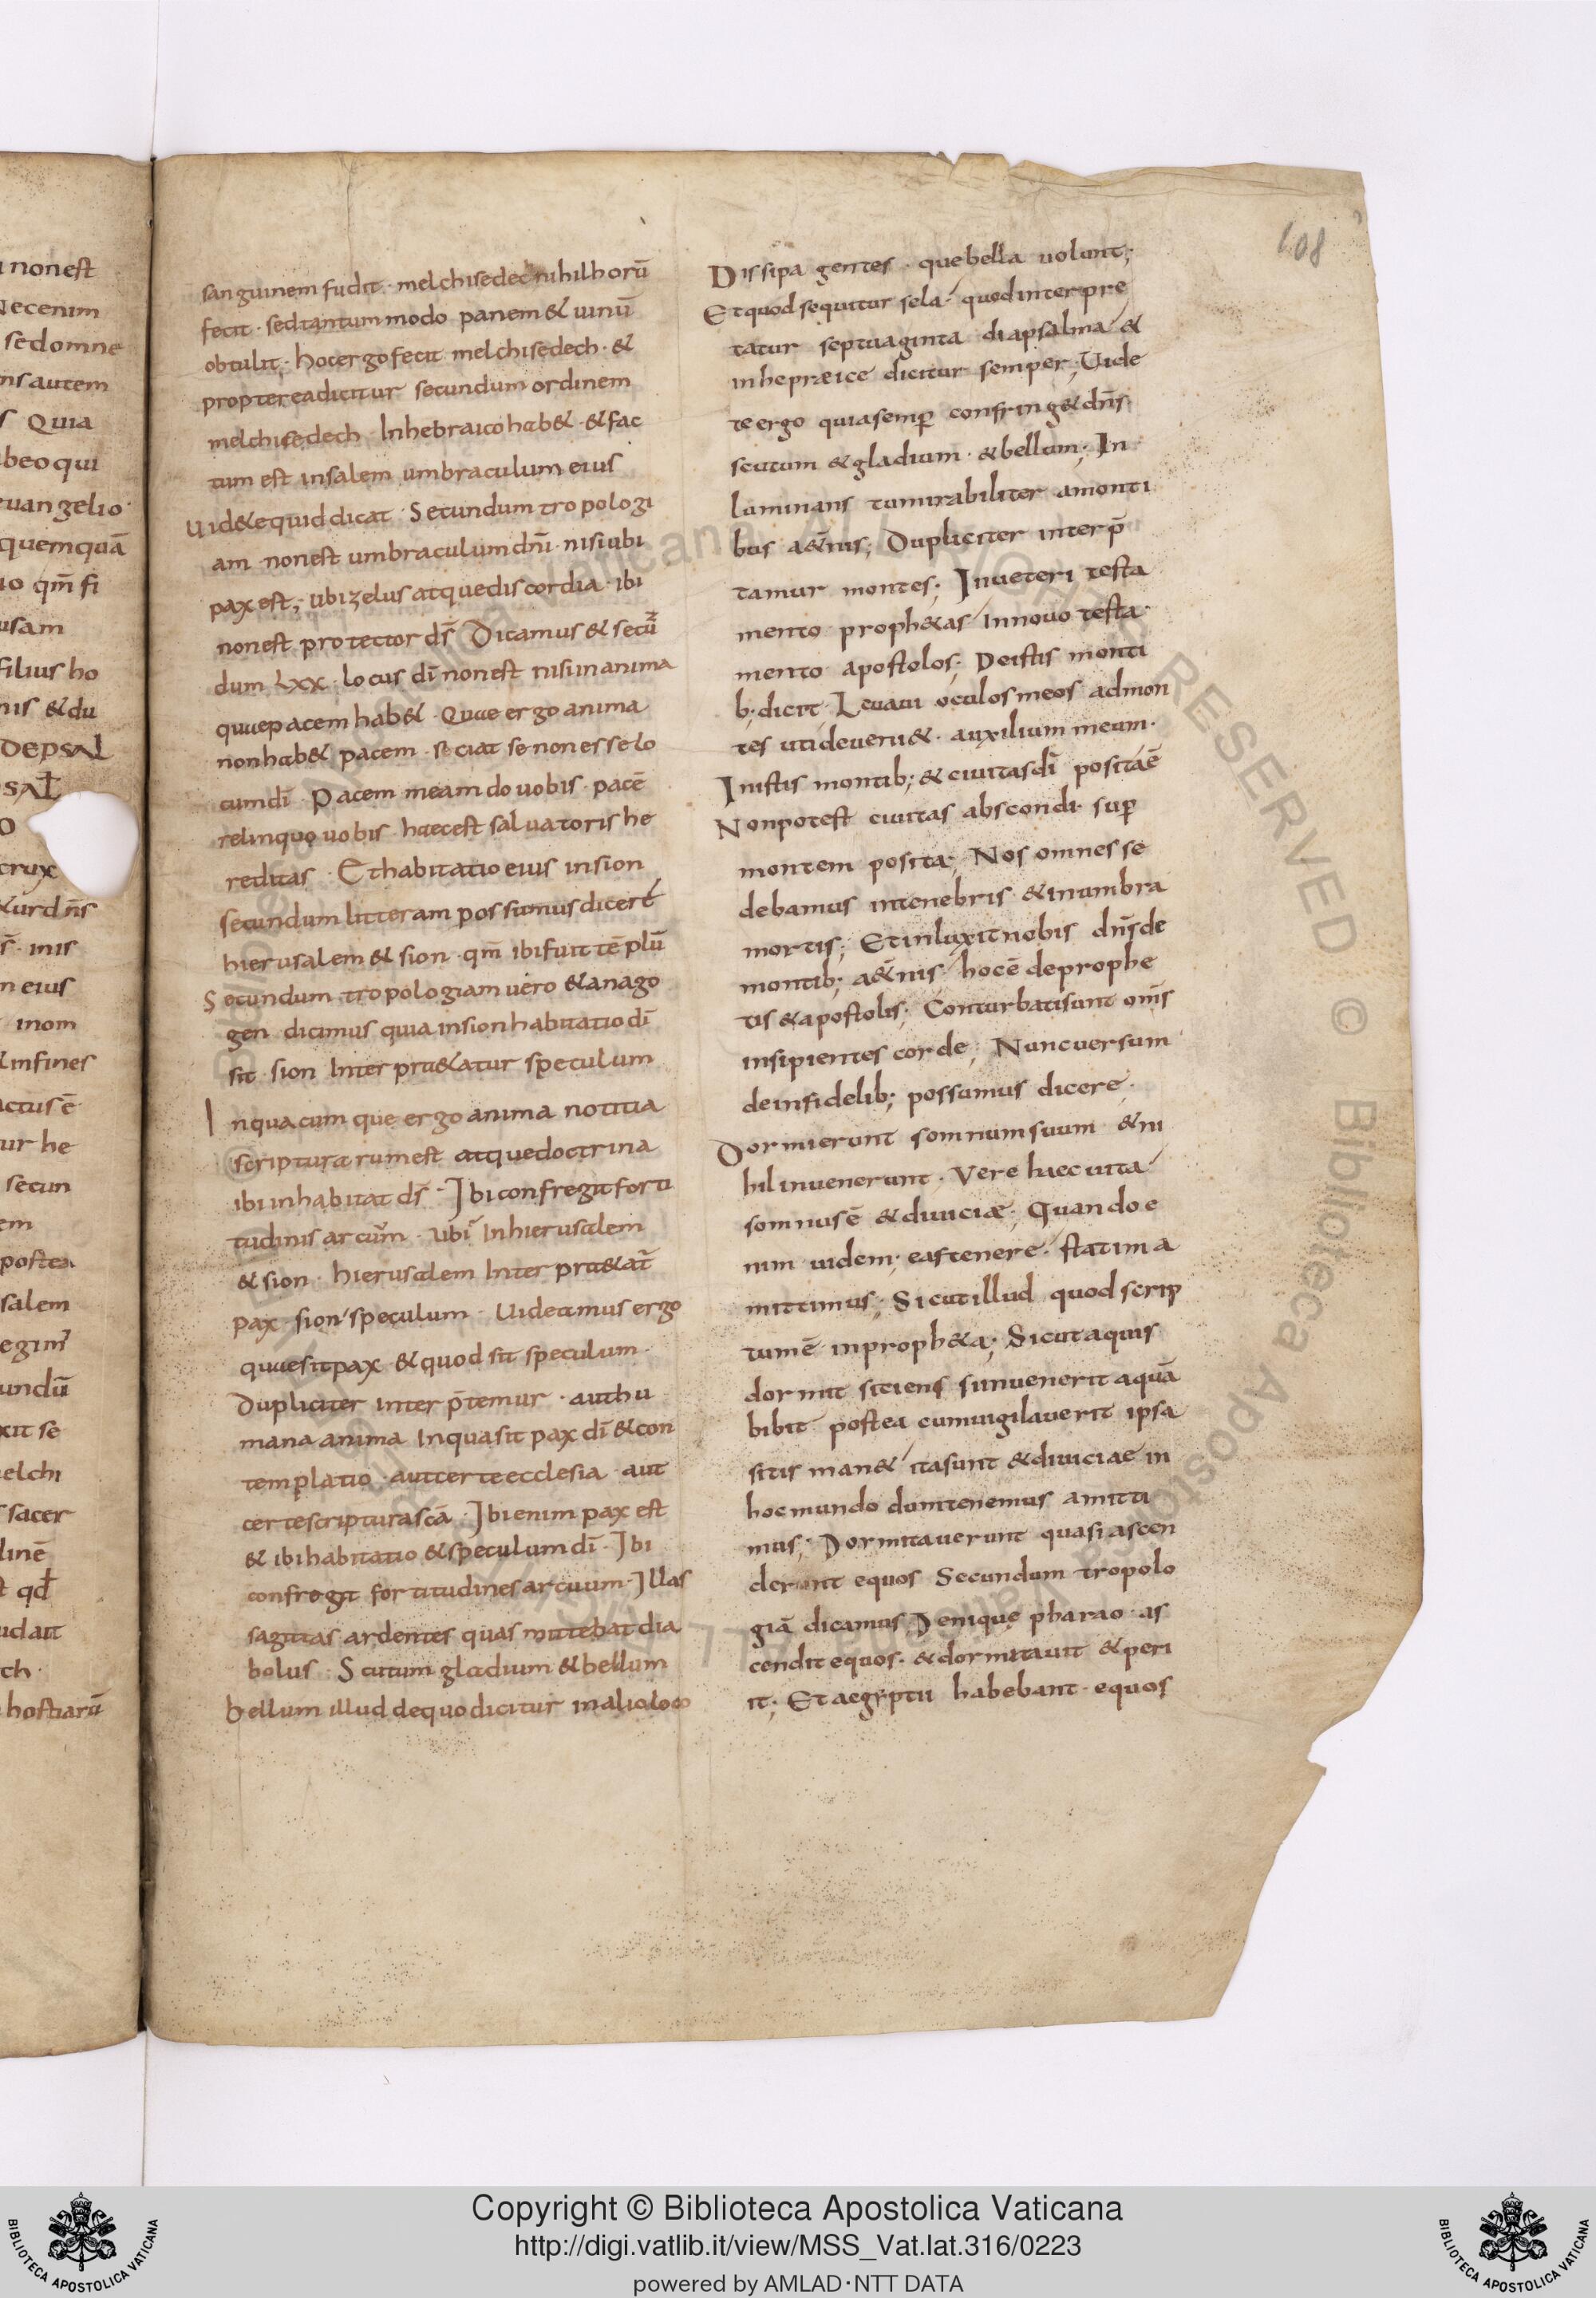 108
a non est
Nec enim
sed omne
ns autem
s Quia
beo qui
euangelio
quemquā
io qm̄ fi
usam
filius ho
nis & du
DEPSAL
SAL̄
O
crux
&ur dn̄s
s̄ · inis
n eius
inom
&infines
actus ē
ur he
secun
em
postea
salem
egim̄
undū
xit se
elchi
sacer
dinē
t qd̄
udait
ch ·
hostiarū
sanguinem fudit · melchisedec nihil horū
fecit · sed tantum modo panem & uinū
obtulit · hoc ergo fecit melchisedech · &
propterea dicitur secundum ordinem
melchisedech · In hebraico hab& · & fac
tum est in salem umbraculum eius
Uid&e quid dicat · Secundum tropologi
am non est umbraculum dn̄i · nisi ubi
pax est; ubi zelus atque discordia · ibi
non est protector ds̄ Dicamus & secū
dum Lxx · locus dī non est nisi in anima
quae pacem hab& · Quae ergo anima
non hab& pacem · sciat se non esse lo
cum dī · Pacem meam do uobis · pacē
relinquo uobis · haec est saluatoris he
reditas · Et habitatio eius in sion
secundum litteram possumus dicere
hierusalem & sion · qm̄ ibi fuit tēplū
Secundum tropologiam uero & anago
gen dicimus quia in sion habitatio dī
sit · sion Interpr&atur speculum
In quacumque ergo anima notitia
scripturarum est atque doctrina
ibi inhabitat ds̄ · Ibi confregit forti
tudinis arcūm · ubi In hierusalem
& sion · hierusalem Interpr&at̄
pax · sion speculum · Uideamus ergo
quae sit pax & quod sit speculum ·
Dupliciter inter p̄temur · aut hu
mana anima In qua sit pax dī & con
templatio · aut certe ecclesia · aut
certe scriptura scā · Ibi enim pax est
& ibi habitatio & speculum dī · Ibi
confregit fortitudines arcuum · Illas
sagittas ardentes quas mittebat dia
bolus · Scutum gladium & bellum
bellum illud de quo dicitur in alio loco
Dissipa gentes · que bella uolunt;
Et quod sequitur sela · quod interpre
tatur septuaginta diapsalma &
in hepreice dicitur semper; Uide
te ergo quia semper confring& dn̄s
scutum & gladium · & bellum; In
luminans tu mirabiliter a monti
bus a&nis; Dupliciter inter p̄
tamur montes; In ueteri testa
mento proph&as In nouo testa
mento apostolos; De istis monti
b; dicit Leuaui oculos meos ad mon
tes unde ueni& · auxilium meum ·
In istis montib; & ciuitas dī posita ē
Non potest ciuitas abscondi · sup̄
montem posita; Nos omnes se
debamus in tenebris & in umbra
mortis; Et inluxit nobis dn̄s de
montib; a&nis hoc ē de prophe
tis & apostolis; Conturbati sunt om̄s
insipientes corde; Nunc uersum
de infidelib; possumus dicere ·
Dormierunt somnum suum & ni
hil inuenerunt · Vere haec uita
somnus ē & diuiciae; Quando e
nim uidem; eas tenere · statim a
mittimus; Sicut illud quod scrip
tum ē in proph&a; Sicut aquis
dormit sitiens si inuenerit aquā
bibit postea cum uigilauerit ipsa
sitis man& ita sunt & diuiciae in
hoc mundo dum tenemus amitti
mus; Dormitauerunt quasi ascen
derunt equos Secundum tropolo
giā dicamus; Denique pharao · as
cendit equos · & dormitauit & peri
it; Et aegyptii habebant · equos
Copyright © Biblioteca Apostolica Vaticana
http://digi.vatlib.it/view/MSS_Vat.lat.316/0223
powered by AMLAD·NTT DATA
BIBLIOTECA APOSTOLICA VATICANA
BIBLIOTECA APOSTOLICA VATICANA